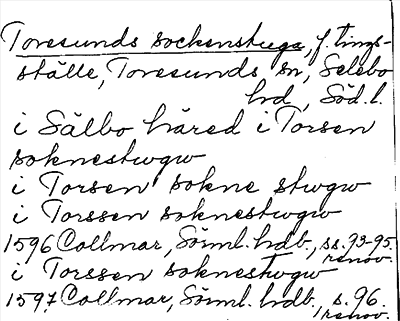 Toresunds sockenstuga, f. tings-
ställe, Toresunds sn, Selebo
hd, Söd. l.
i Sälbo häred i Torsen
soknestwgw
i Torsen sokne stwgw
i Torssen soknestwgw
1596 Collmar, Sörml. hdb., ss. 93-95.
renov.
i Torssen soknestwgw
1597 Collmar, Sörml. hdb., s. 96.
renov.